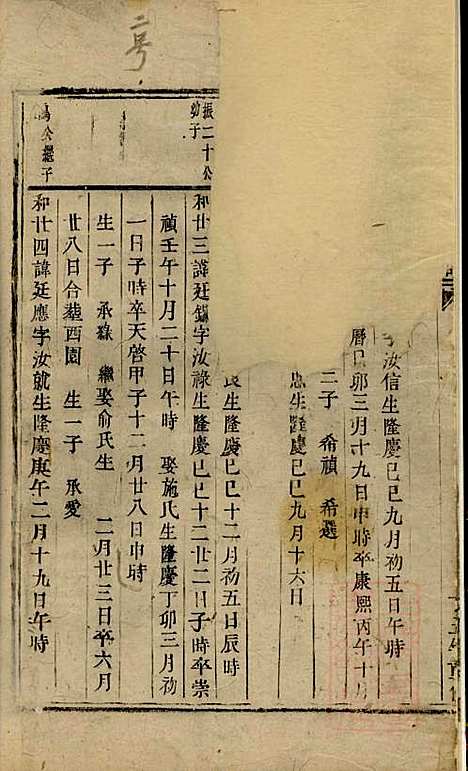 字汝信生隆慶己巳九月初五日午時
曆己卯三月十九日申時卒康熙丙午十月
二子 希禎 希選
忠生隆慶己巳九月十六日
良生隆慶己巳十二月初五日辰時
振二十公
幼子
和廿三諱廷鑛字汝祿生隆慶己巳十二廿二日子時卒崇
禎壬午十月二十日午時 娶施氏生隆慶丁卯三月初
一日子時卒天啓甲子十二月廿八日申時
生一子 承祿 繼娶俞氏生 二月廿三日卒六月
廿八日合葬西園 生一子 承愛
公繼子
和廿四諱廷應字汝就生隆慶庚午二月十九日午時
二号